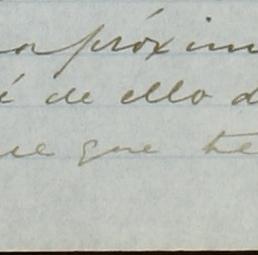 a próxim
é de ello d
ue que te